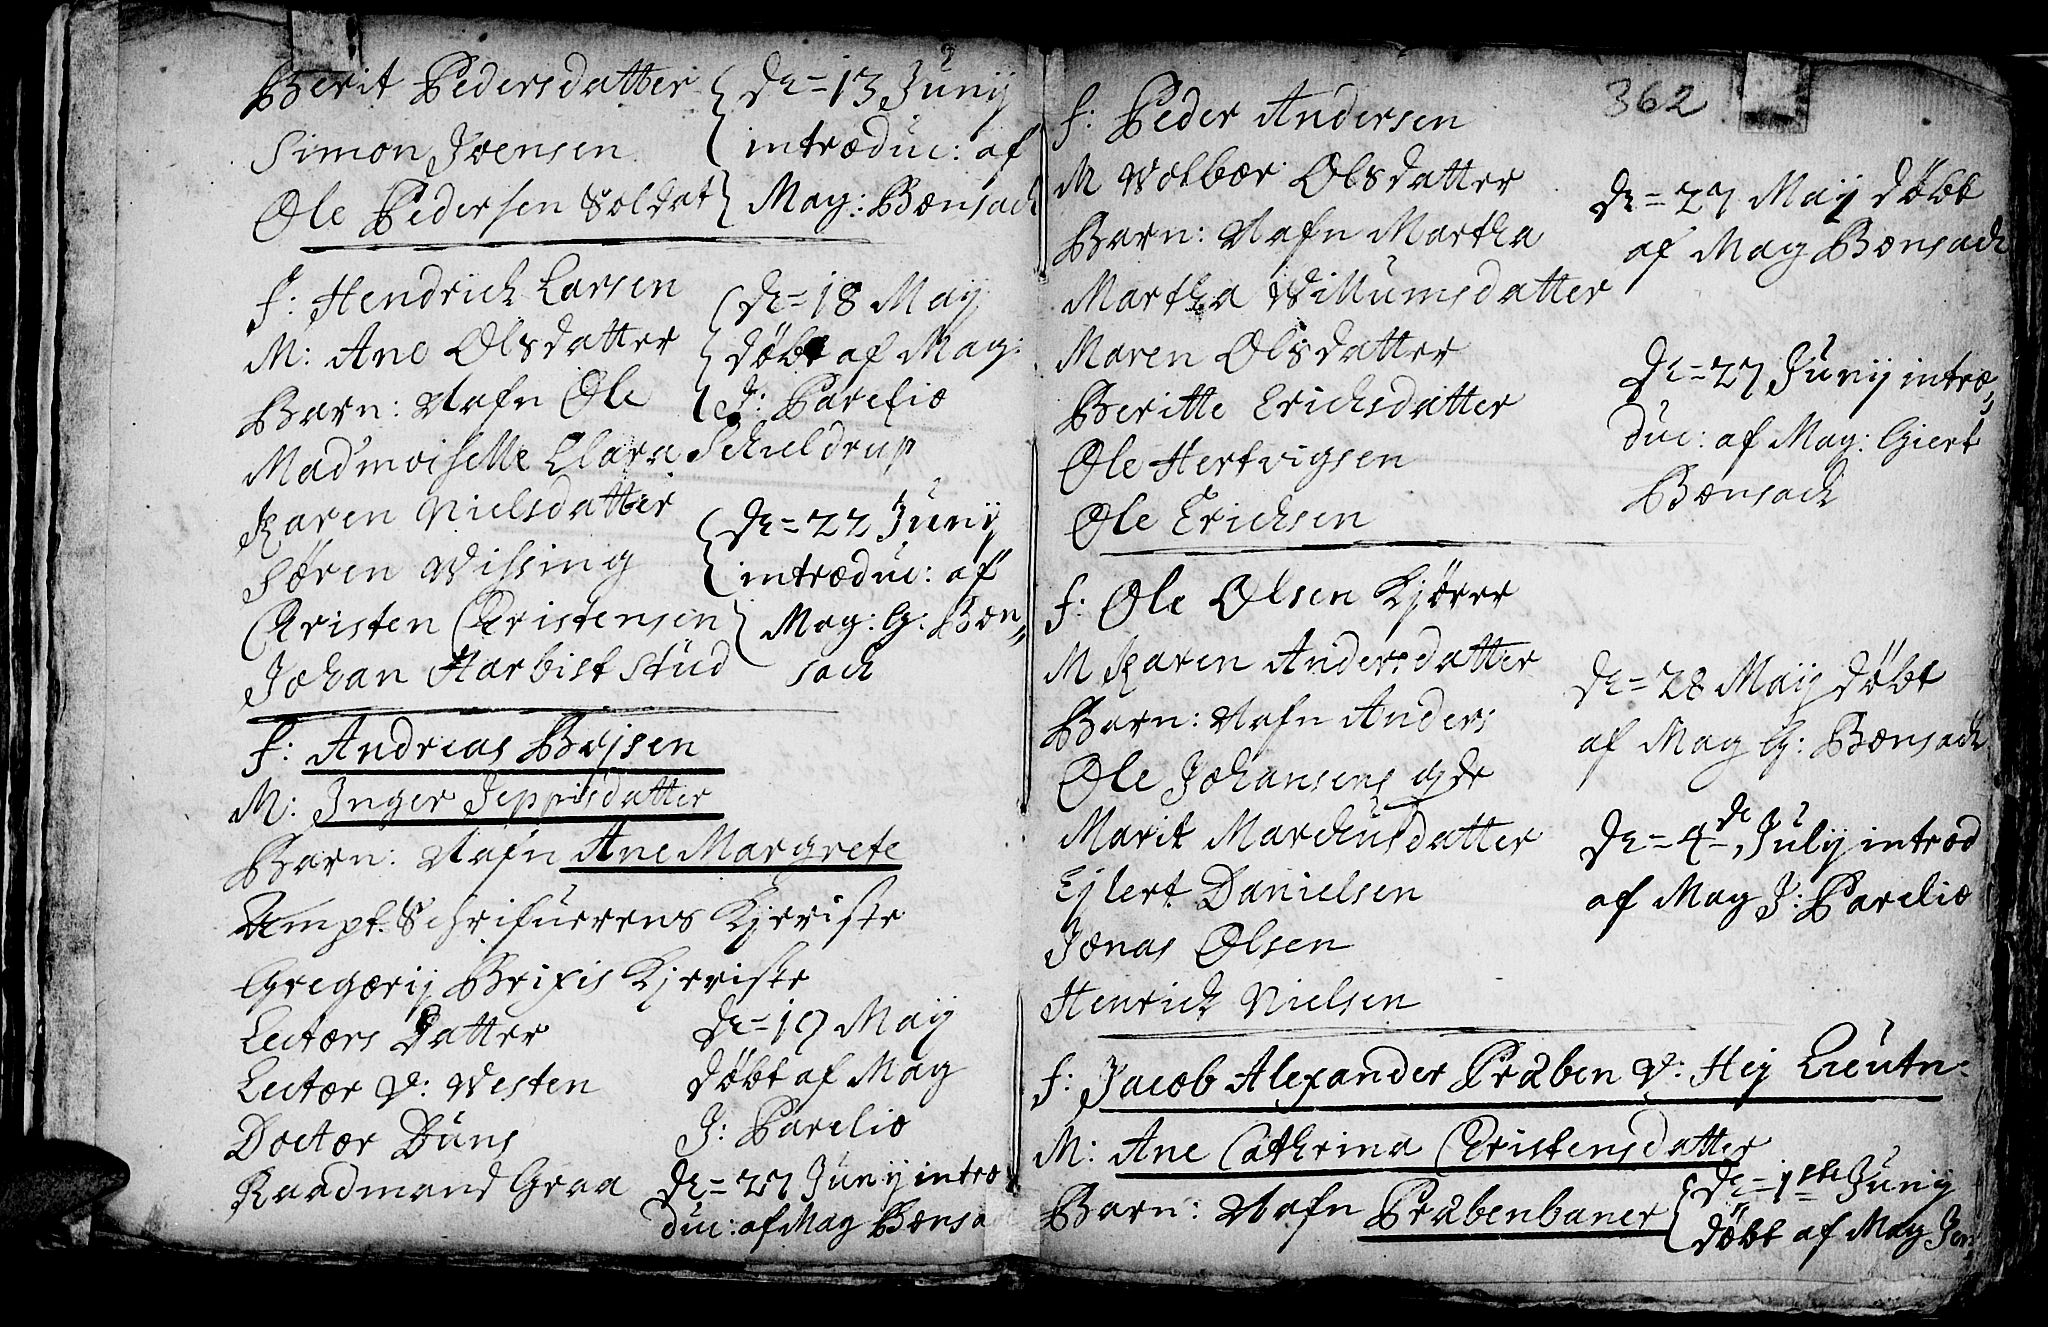 Berit Pedersdatter
Simon Joensen
Ole Pedersen Soldat
De=13 Junij
introduc: af
Mag: Bonsach
f: Hendrich Larsen
M: Ane Olsdatter
Barn: Nafn Ole
Mad'moiselle Clara Schieldrup
Karen Nielsdatter
Søren Wissing
Christen Christensen
Johan Harbist Stud
De=18 Maij
døbt af Mag:
J: Parelio
De=22 Junij
introduc: af
Mag: G: Bon„
sach
f: Andreas Bøjsen
M: Inger Jeppisdatter
Barn: Nafn Ane Margrete
Ampt. Schrifuerens Kjeriste
Gregorij Brixis Kjeriste
Lectors Datter
Lector V: Westen
Doctor Buns
Raadmand Graa
De=19 Maij
døbt af Mag
J: Parelio
De=27 Junij intro
duc: af Mag Bonsa
362
f: Peder Andersen
M Wolbor Olsdatter
Barn: Nafn Martha
Martha Willumsdatter
Maren Olsdatter
Beritte Erichsdatter
Ole Hertvigsen
Ole Erichsen
De=27 Maij døbt
af Mag Bonsach
De=27 Junij intro„
duc: af Mag: Giert
Bonsach
f: Ole Olsen Kjører
M Karen Andersdatter
Barn: Nafn Anders
Ole Johansens
Marit Marchusdatter
Ejlert Danielsen
Jonas Olsen
Henrich Nielsen
De=28 Maij døbt
af Mag G: Bonsach
De=4de Julij introd
af Mag J: Parelio
f: Jacob Alexander Pråben V: Hej Lieutn=
M: Ane Cathrina Christensdatter
Barn: Nafn Pråbenbaner
De=1ste Junij
døbt af Mag Jon